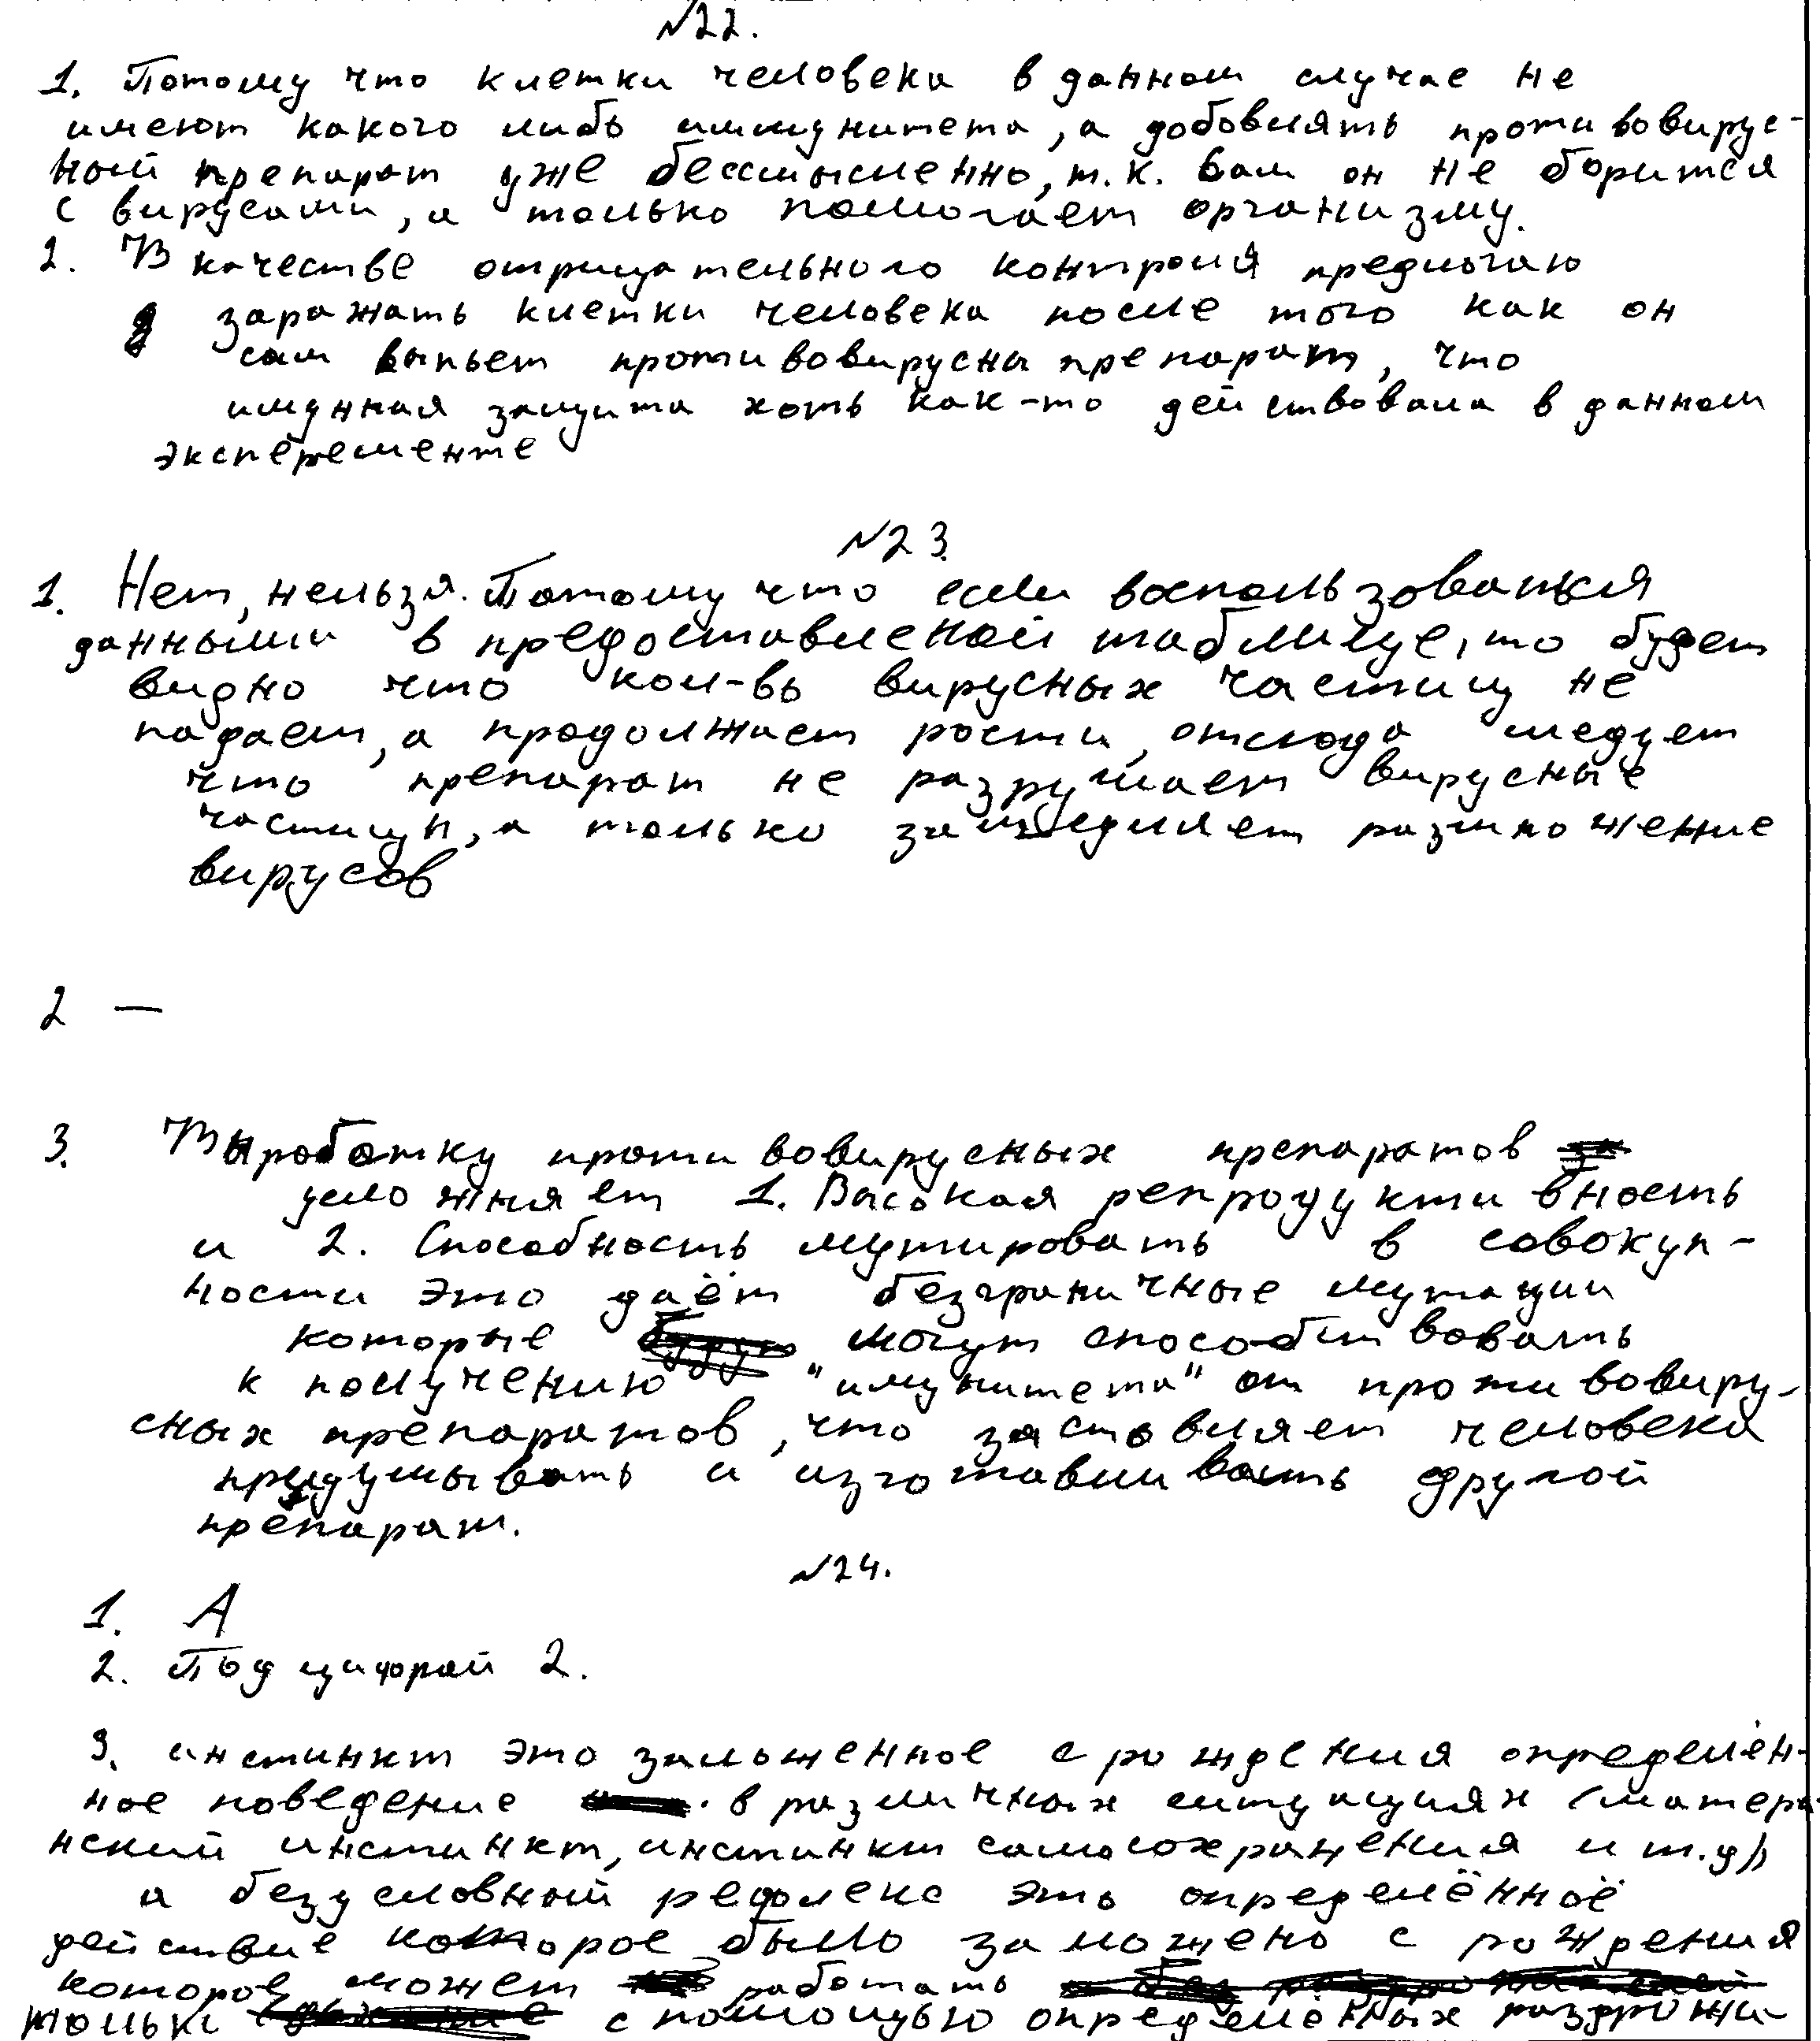 №22.
1. Потому что клетки человека в данном случае не
имеют какого либо иммунитета, а добовлять противовирус-
ный препарат уже бессмысленно, т.к. сам он не борится
с вирусами, а только помогает организму.
2. В качестве отрицательного контроля предлогаю
заражать клетки человека после того как он
сам выпьет противовирусны препарат, что
имунная защита хоть как-то действовала в данном
эксперементе
№23.
1. Нет, нельзя. Потому что если воспользоваться
данными в предоставленой таблице, то будет
видно что кол-во вирусных частиц не
падает, а продолжает рости, отсюда следует
что препарат не разрушает вирусные
частицы, а только замедляет размножение
вирусов
2 —
3. Выработку противовирусных препаратов
усложняет 1. Высокая репродуктивность
и 2. Способность мутировать в совокуп-
ности это даёт безграничные мутации
которые могут способствовать
к получению "имунитета" от противовиру-
сных препаратов, что заставляет человека
придумывать и изготавливать другой
препарат.
№24.
1. А
2. Под цифрой 2.
3. инстинкт это заложенное с рождения определён-
ное поведение в различных ситуациях (матери
нский инстинкт, инстинкт самосохранения и т.д),
а безусловный рефлекс это определённое
действие которое было заложено с рождения
которое может работать
только с помощью определённых раздражи-